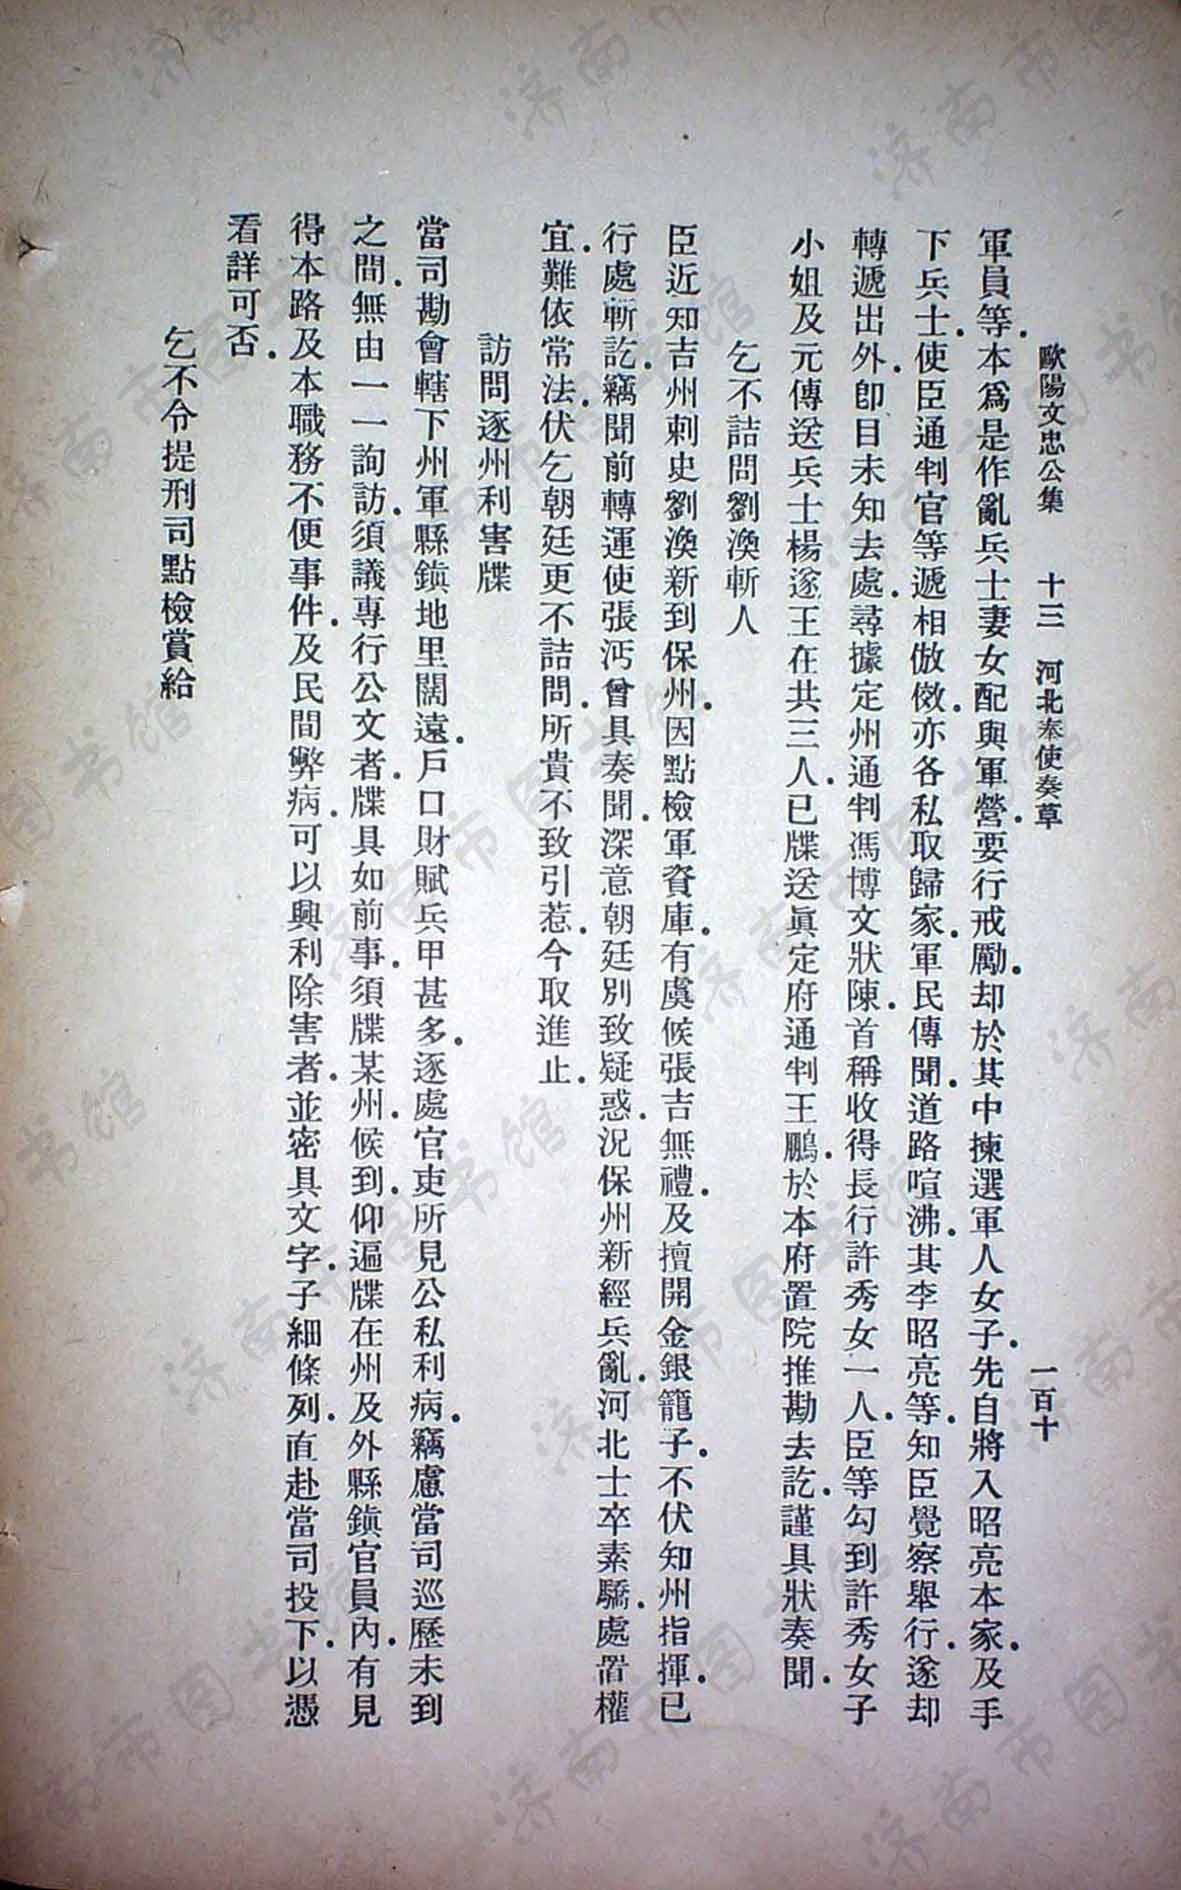 歐陽文忠公集　十三　河北奉使奏草　一百十
軍員等．本爲是作亂兵士妻女配與軍營．要行戒勵．却於其中揀選軍人女子．先自將入昭亮本家．及手
下兵士．使臣通判官等遞相倣傚．亦各私取歸家．軍民傳聞．道路喧沸．其李昭亮等．知臣覺察舉行．遂却
轉遞出外．卽目未知去處．尋據定州通判馮博文狀陳．首稱收得長行許秀女一人．臣等勾到許秀女子
小姐及元傳送兵士楊遂王在共三人．已牒送眞定府通判王鵬．於本府置院推勘去訖．謹具狀奏聞．
乞不詰問劉渙斬人
臣近知吉州刺史劉渙新到保州．因點檢軍資庫．有虞候張吉無禮．及擅開金銀籠子．不伏知州指揮．已
行處斬訖．竊聞前轉運使張沔曾具奏聞．深意朝廷別致疑惑．況保州新經兵亂．河北士卒素驕．處置權
宜．難依常法．伏乞朝廷更不詰問．所貴不致引惹．今取進止．
訪問逐州利害牒
當司勘會轄下州軍縣鎮地里闊遠．戶口財賦兵甲甚多．逐處官吏所見公私利病．竊慮當司巡歷未到
之間．無由一一詢訪．須議專行公文者．牒具如前事．須牒某州．候到．仰遍牒在州及外縣鎮官員內．有見
得本路及本職務不便事件．及民間弊病．可以興利除害者．並密具文字．子細條列．直赴當司投下．以憑
看詳可否．
乞不令提刑司點檢賞給
濟南市圖書館